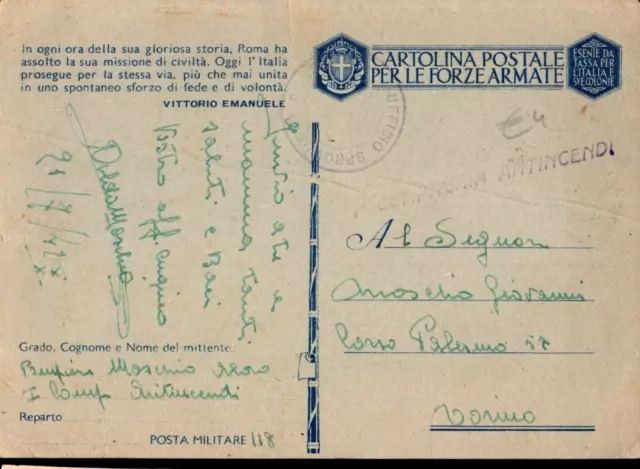 In ogni ora della sua gloriosa storia, Roma ha
assolto la sua missione di civiltà. Oggi l'Italia
prosegue per la stessa via, più che mai unita
in uno spontaneo sforzo di fede e di volontà.
VITTORIO EMANUELE
CARTOLINA POSTALE
PER LE FORZE ARMATE
ESENTE DA
TASSA PER
L'ITALIA E
SVE COLONIE
UFFICIO
€4
ANTINCENDI
a te e
mamma tanti
saluti e Baci
Vostro aff. cugino
21/7/42
Al Signor
Moschio Giovanni
Corso Palermo 57
Torino
Grado, Cognome e Nome del mittente:
Moschio
I Comp. Antincendi
Reparto
POSTA MILITARE 118